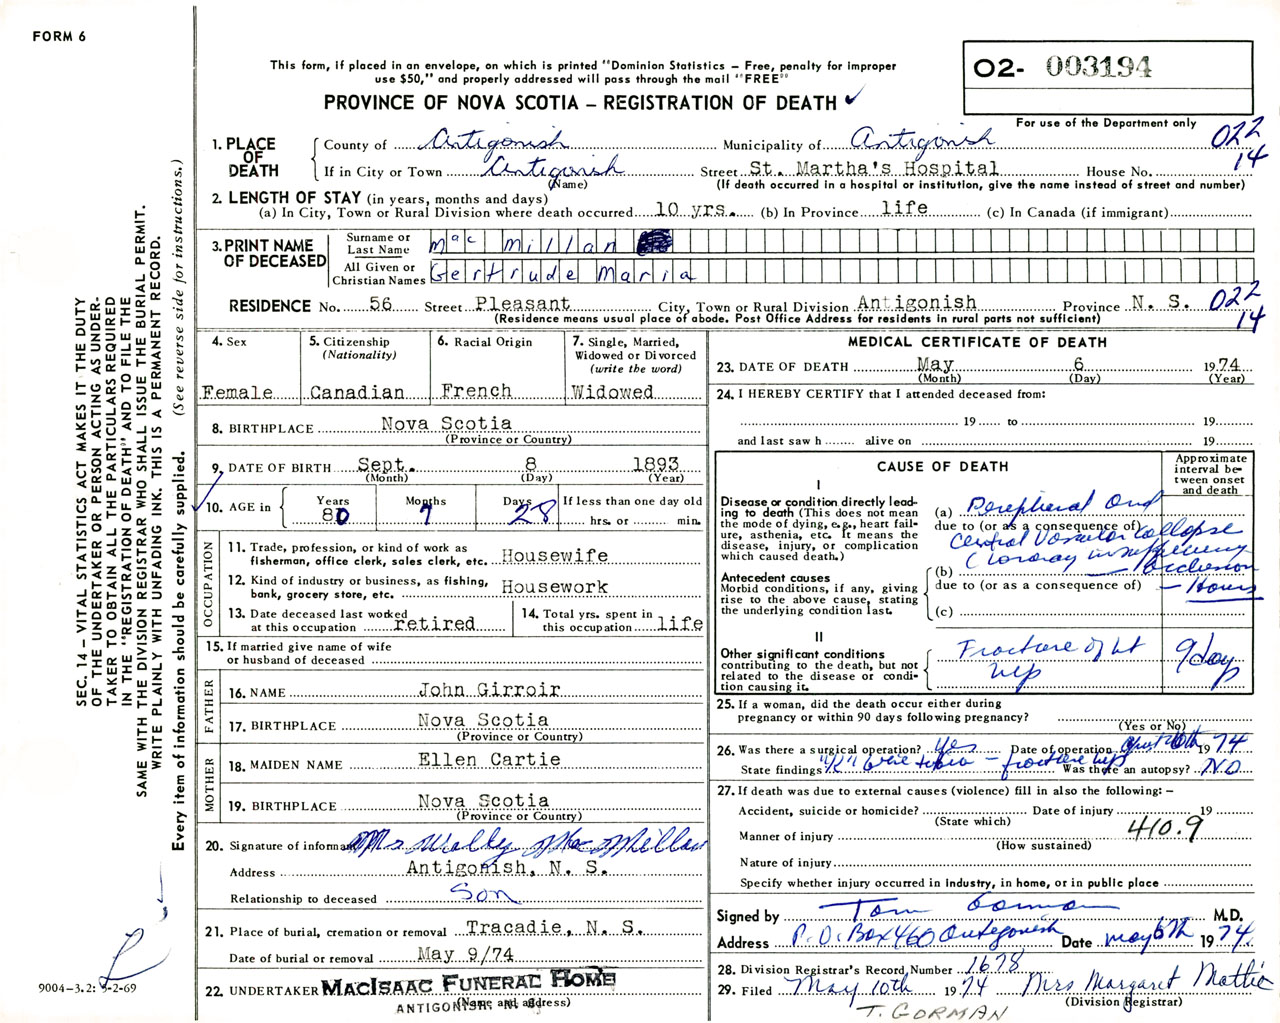 FORM 6
This form, if placed in an envelope, on which is printed "Dominion Statistics – Free, penalty for improper
use $50," and properly addressed will pass through the mail "FREE"
PROVINCE OF NOVA SCOTIA – REGISTRATION OF DEATH ✓
O2- 003194
For use of the Department only
022
14
1. PLACE OF DEATH
County of Antigonish Municipality of Antigonish
If in City or Town Antigonish Street St. Martha's Hospital House No.
(Name) (If death occurred in a hospital or institution, give the name instead of street and number)
2. LENGTH OF STAY (in years, months and days)
(a) In City, Town or Rural Division where death occurred 10 yrs. (b) In Province life (c) In Canada (if immigrant)
3. PRINT NAME OF DECEASED
Surname or Last Name Mac Millan
All Given or Christian Names Gertrude Maria
RESIDENCE No. 56 Street Pleasant City, Town or Rural Division Antigonish Province N. S. 022
14
(Residence means usual place of abode. Post Office Address for residents in rural parts not sufficient)
SEC. 14 – VITAL STATISTICS ACT MAKES IT THE DUTY
OF THE UNDERTAKER OR PERSON ACTING AS UNDER-
TAKER TO OBTAIN ALL THE PARTICULARS REQUIRED
IN THE "REGISTRATION OF DEATH" AND TO FILE THE
SAME WITH THE DIVISION REGISTRAR WHO SHALL ISSUE THE BURIAL PERMIT.
WRITE PLAINLY WITH UNFADING INK. THIS IS A PERMANENT RECORD.
Every item of information should be carefully supplied. (See reverse side for instructions.)
4. Sex
Female
5. Citizenship
(Nationality)
Canadian
6. Racial Origin
French
7. Single, Married,
Widowed or Divorced
(write the word)
Widowed
8. BIRTHPLACE Nova Scotia
(Province or Country)
9. DATE OF BIRTH Sept. 8 1893
(Month) (Day) (Year)
10. AGE in
Years Months Days If less than one day old
80 7 28 hrs. or min.
OCCUPATION
11. Trade, profession, or kind of work as
fisherman, office clerk, sales clerk, etc. Housewife
12. Kind of industry or business, as fishing,
bank, grocery store, etc. Housework
13. Date deceased last worked
at this occupation retired
14. Total yrs. spent in
this occupation life
15. If married give name of wife
or husband of deceased
FATHER
16. NAME John Girroir
17. BIRTHPLACE Nova Scotia
(Province or Country)
MOTHER
18. MAIDEN NAME Ellen Cartie
19. BIRTHPLACE Nova Scotia
(Province or Country)
20. Signature of informant Mrs Wally MacMillan
Address Antigonish, N. S.
Relationship to deceased Son
21. Place of burial, cremation or removal Tracadie, N. S.
Date of burial or removal May 9/74
22. UNDERTAKER MACISAAC FUNERAL HOME
(Name and address)
ANTIGONISH, N. S.
9004-3.2: 5-2-69
MEDICAL CERTIFICATE OF DEATH
23. DATE OF DEATH May 6 1974
(Month) (Day) (Year)
24. I HEREBY CERTIFY that I attended deceased from:
19 to 19
and last saw h alive on 19
CAUSE OF DEATH
Approximate
interval be-
tween onset
and death
I
Disease or condition directly lead-
ing to death (This does not mean
the mode of dying, e.g., heart fail-
ure, asthenia, etc. It means the
disease, injury, or complication
which caused death.)
(a) Peripheral and
due to (or as a consequence of)
Central Vascular Collapse
Antecedent causes
Morbid conditions, if any, giving
rise to the above cause, stating
the underlying condition last.
(b) Coronary insufficiency
due to (or as a consequence of) – Hours
(c)
II
Other significant conditions
contributing to the death, but not
related to the disease or condi-
tion causing it.
Fracture of Lt
Hip
9 day
25. If a woman, did the death occur either during
pregnancy or within 90 days following pregnancy?
(Yes or No)
26. Was there a surgical operation? Yes Date of operation 1974
State findings fracture hip Was there an autopsy? No
27. If death was due to external causes (violence) fill in also the following: –
Accident, suicide or homicide? Date of injury 19
(State which)
410.9
Manner of injury
(How sustained)
Nature of injury
Specify whether injury occurred in industry, in home, or in public place
Signed by Tom Gorman M.D.
Address P.O. Box 460 Antigonish Date May 6th 1974
28. Division Registrar's Record Number 1678
29. Filed May 10th 1974 Mrs Margaret Mattie
(Division Registrar)
T. GORMAN